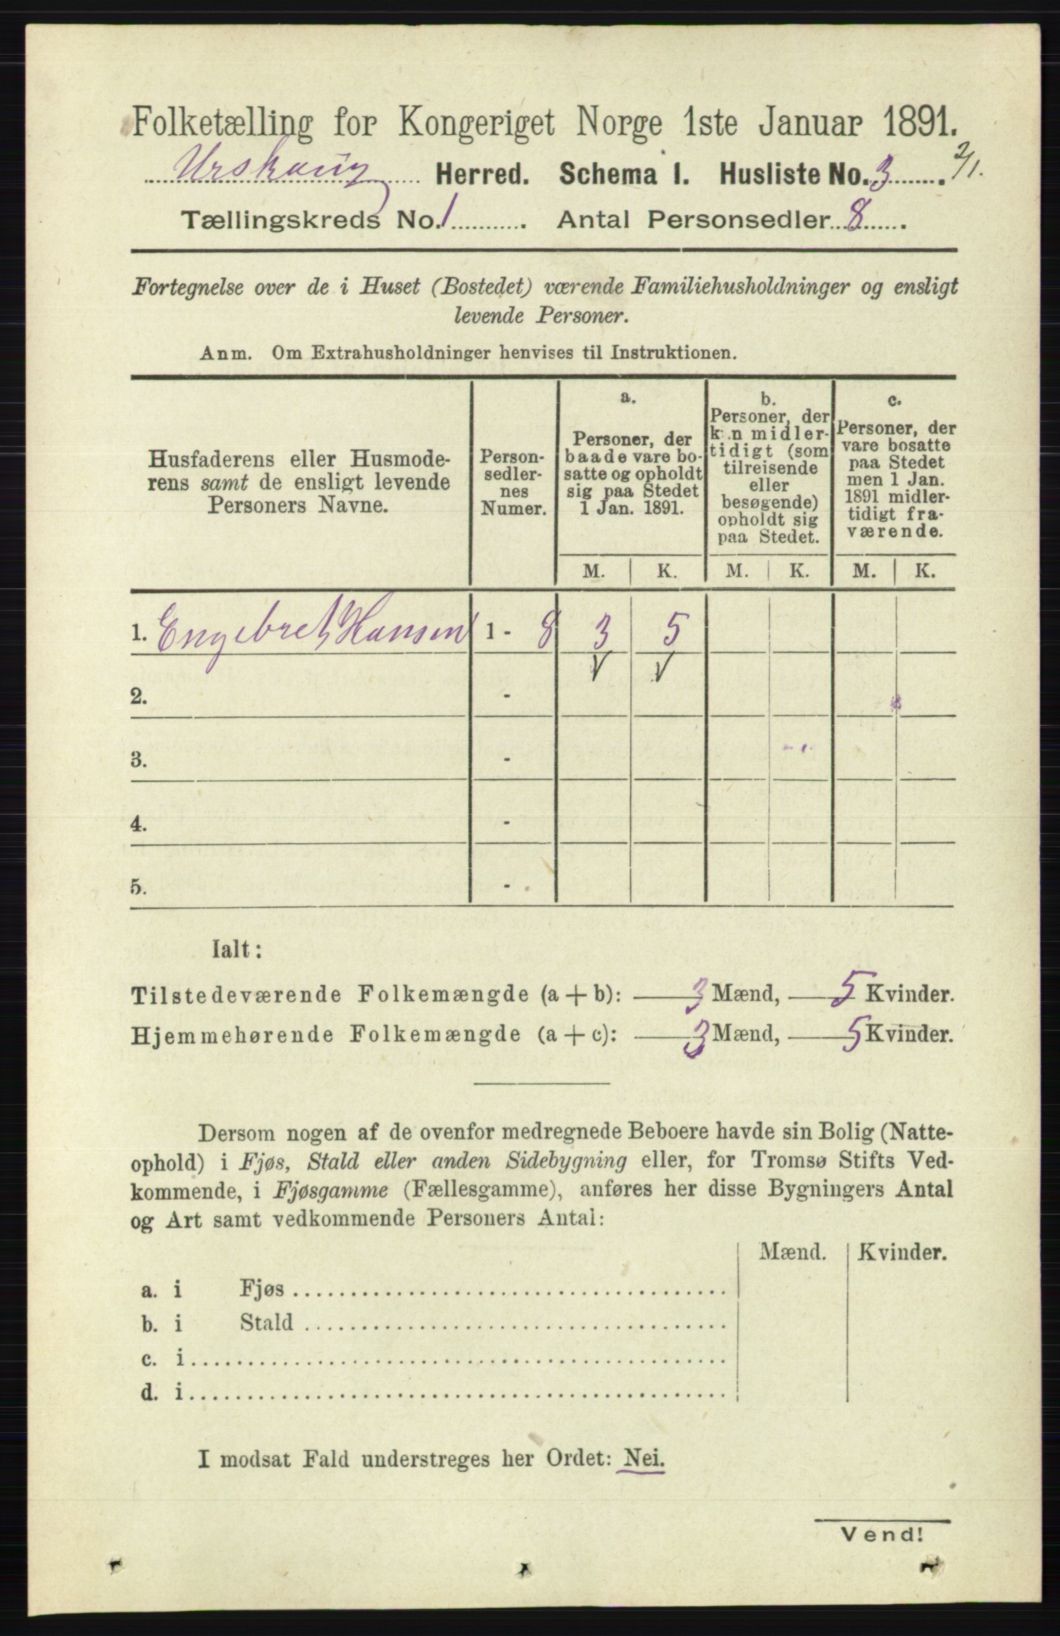 Folketælling for Kongeriget Norge 1ste Januar 1891.
Urskoug Herred. Schema 1. Husliste No. 3. 2/1.
Tællingskreds No. 1. Antal Personsedler 8.
Fortegnelse over de i Huset (Bostedet) værende Familiehusholdninger og ensligt
levende Personer.
Anm. Om Extrahusholdninger henvises til Instruktionen.
Husfaderens eller Husmode-
rens samt de ensligt levende
Personers Navne.
Person-
sedler-
nes
Numer.
a.
Personer, der
baade vare bo-
satte og opholdt
sig paa Stedet
1 Jan. 1891.
b.
Personer, der
kun midler-
tidigt (som
tilreisende
eller
besøgende)
opholdt sig
paa Stedet.
c.
Personer, der
vare bosatte
paa Stedet
men 1 Jan.
1891 midler-
tidigt fra-
værende.
M. K. M. K. M. K.
1. Engebret Hansen 1 - 8 3 5
2. -
3. -
4. -
5. -
Ialt:
Tilstedeværende Folkemængde (a + b): 3 Mænd, 5 Kvinder.
Hjemmehørende Folkemængde (a + c): 3 Mænd, 5 Kvinder.
Dersom nogen af de ovenfor medregnede Beboere havde sin Bolig (Natte-
ophold) i Fjøs, Stald eller anden Sidebygning eller, for Tromsø Stifts Ved-
kommende, i Fjøsgamme (Fællesgamme), anføres her disse Bygningers Antal
og Art samt vedkommende Personers Antal:
Mænd. Kvinder.
a. i Fjøs
b. i Stald
c. i
d. i
I modsat Fald understreges her Ordet: Nei.
Vend!